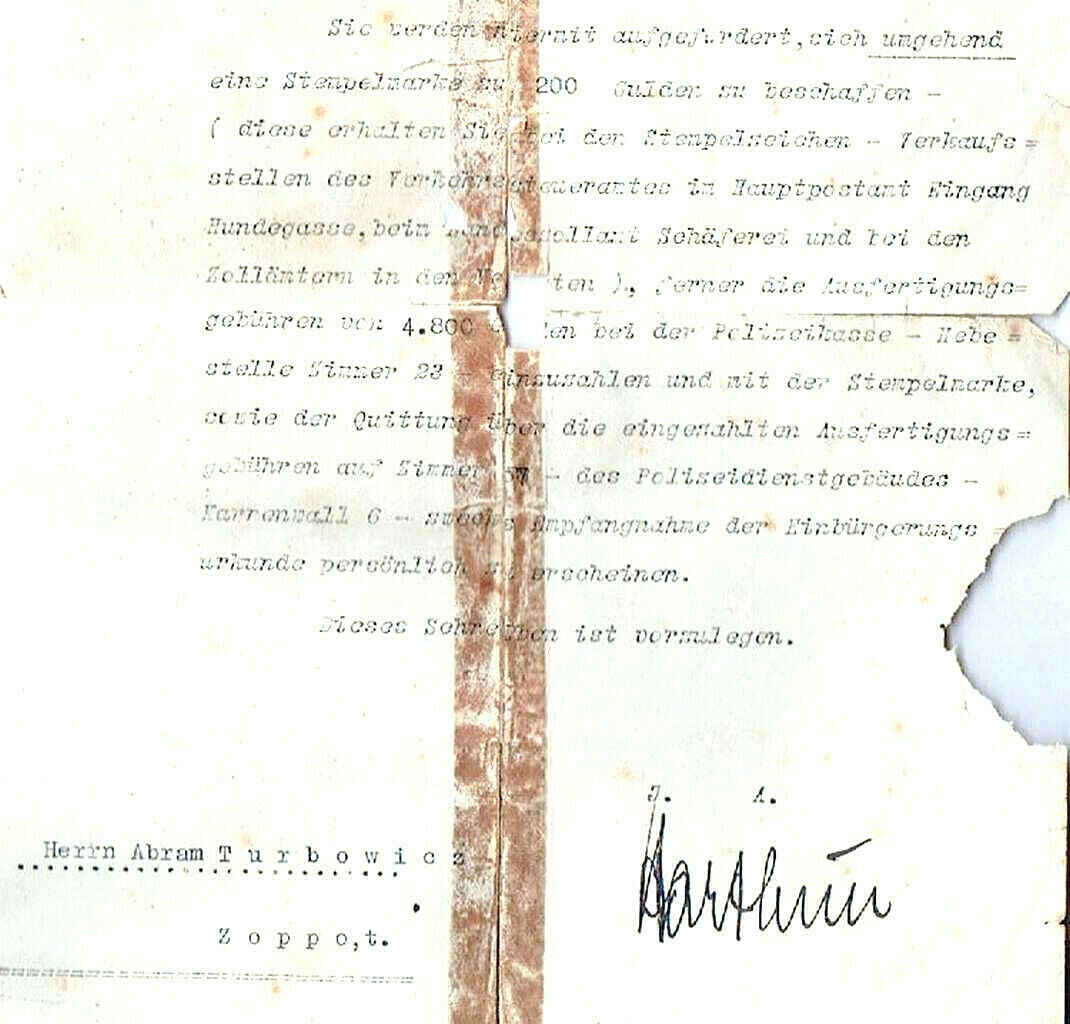 Sie werden hiermit aufgefordert, sich umgehend
eine Stempelmarke zu 200 Gulden zu beschaffen -
( diese erhalten Sie bei den Stempelzeichen - Verkaufs=
stellen des Verkehrssteueramtes im Hauptpostamt Eingang
Hundegasse, beim Landeszollamt Schäferei und bei den
Zollämtern in den ten ), ferner die Ausfertigungs=
gebühren von 4.800 den bei der Polizeikasse - Hebe =
stelle Zimmer 23 - einzuzahlen und mit der Stempelmarke,
sowie der Quittung über die eingezahlten Ausfertigungs=
gebühren auf Zimmer - des Polizeidienstgebäudes -
Karrenwall 6 - zwecks Empfangnahme der Einbürgerungs =
urkunde persönlich zu erscheinen.
Dieses Schreiben ist vorzulegen.
J. A.
Harthun
Herrn Abram T u r b o w i c z
Z o p p o,t.